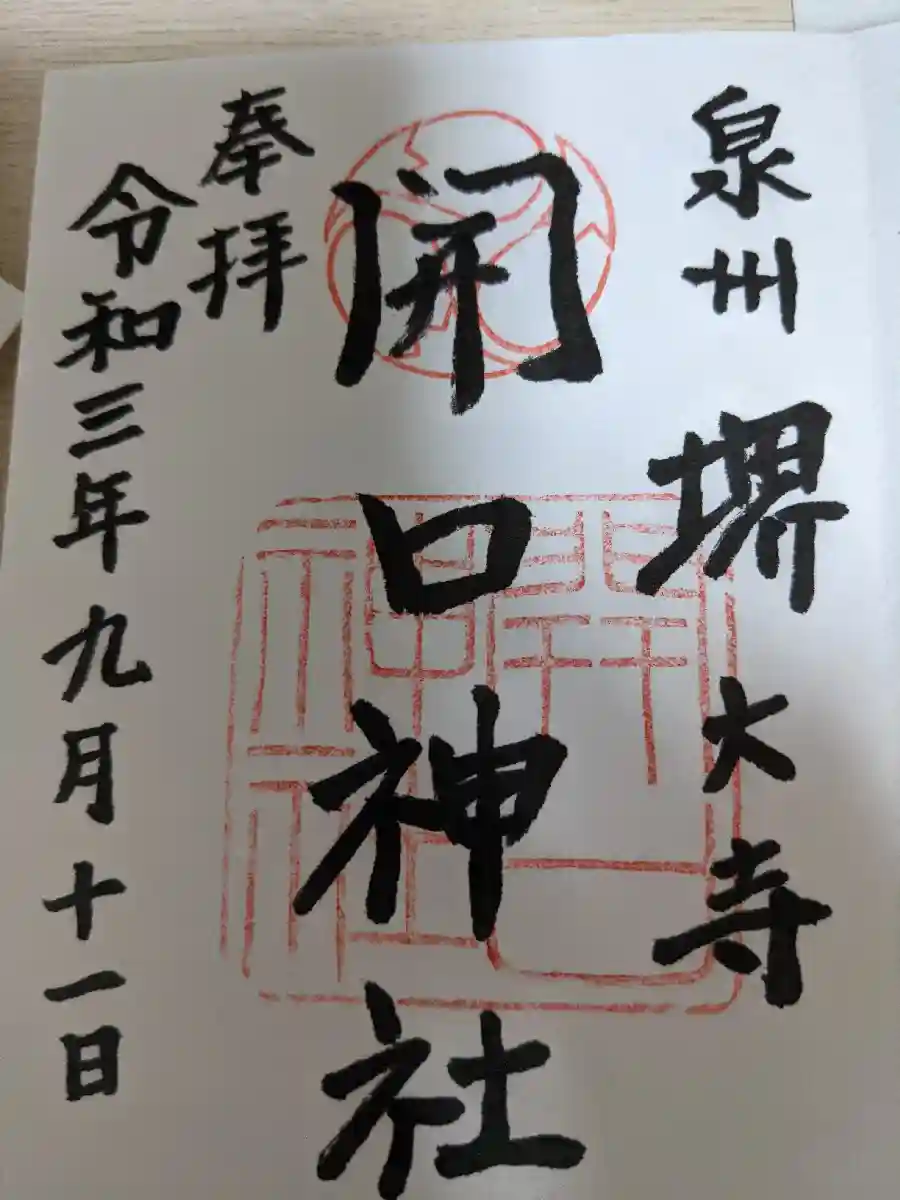 泉州 堺 大寺
開口神社
奉拝
令和三年九月十一日
開口神社